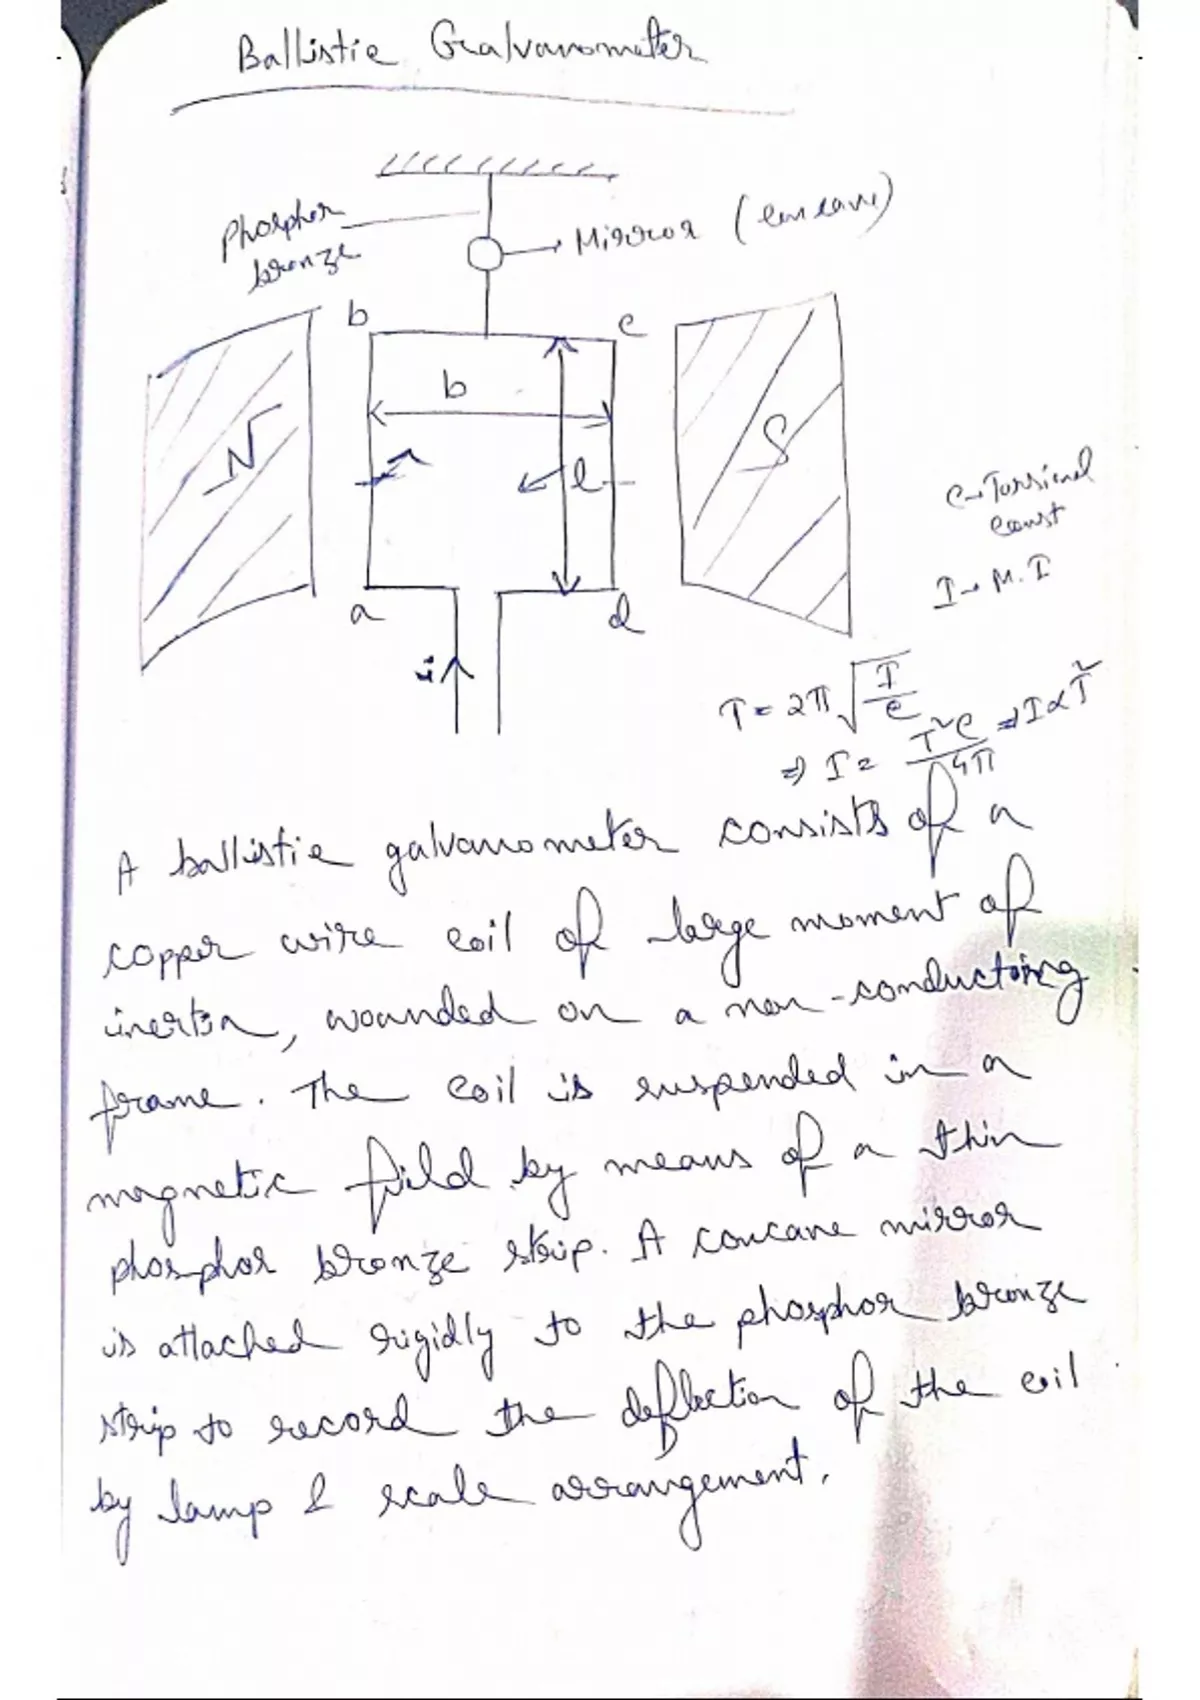 Ballistic Galvanometer
Phosphor
bronze
Mirror (concave)
b
c
b
N
S
l
C → Torsional
const
I → M.I
a
d
i
T = 2π √(I/C)
⇒ I = T²C/4π ⇒ I ∝ T²
A ballistic galvanometer consists of a
copper wire coil of large moment of
inertia, wounded on a non-conducting
frame. The coil is suspended in a
magnetic field by means of a thin
phosphor bronze strip. A concave mirror
is attached rigidly to the phosphor bronze
strip to record the deflection of the coil
by lamp & scale arrangement.